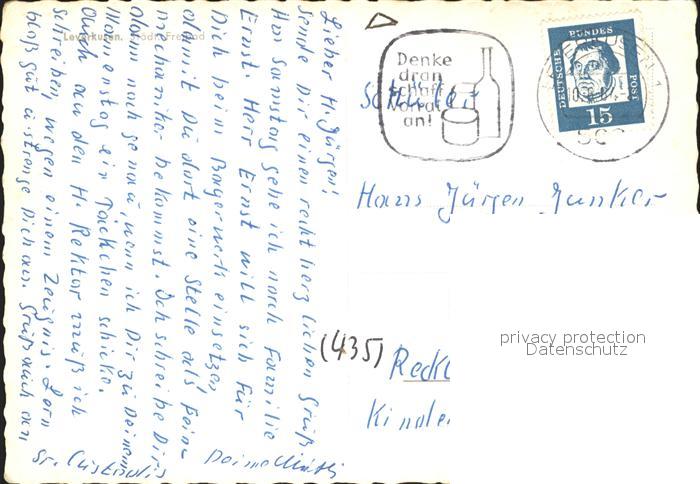 Leverkusen. Städt. Freibad
Lieber H. Jürgen!
Sende Dir einen recht herzlichen Gruß
Am Samstag gehe ich nach Familie
Ernst. Herr Ernst will sich für
Dich beim Bayerwerk einsetzen,
damit Du dort eine Stelle als Fein-
mechaniker bekommst. Ich schreibe Dir's
dann noch genau, wenn ich Dir zu Deinem
Namenstag ein Päckchen schicke.
Auch an den H. Rektor muß ich
schreiben, wegen einem Zeugnis. Lern
bloß gut u. strenge Dich an. Grüß auch an
Sr.
Deine Mutti
Denke
dran
schaff'
Vorrat
an!
DEUTSCHE BUNDESPOST
15
Schüler
Hans Jürgen Junker
(435) Reckl
Kinder
privacy protection
Datenschutz